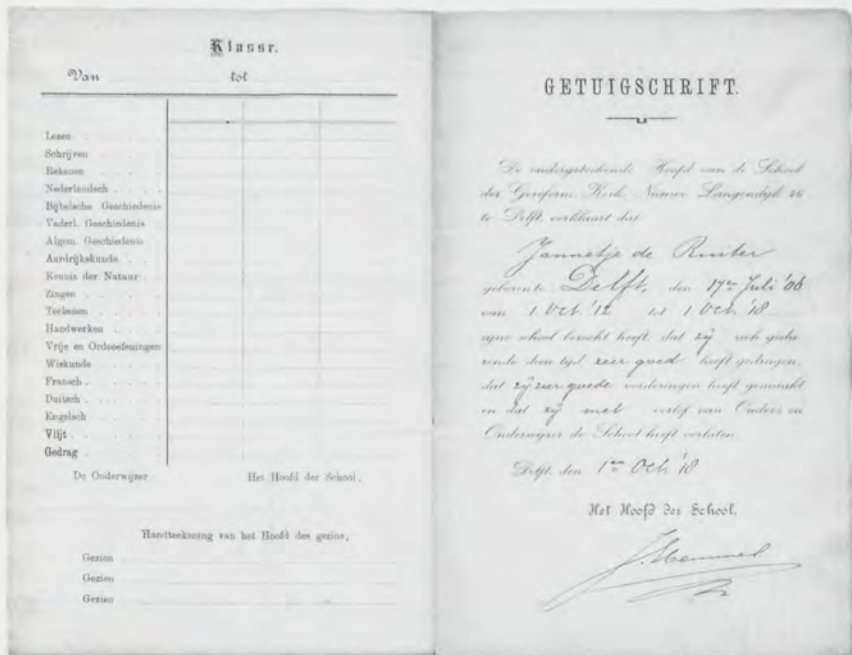 Klasse.
Van tot
Lezen
Schrijven
Rekenen
Nederlandsch
Bijbelsche Geschiedenis
Vaderl. Geschiedenis
Algem. Geschiedenis
Aardrijkskunde
Kennis der Natuur
Zingen
Teekenen
Handwerken
Vrije en Ordeoefeningen
Wiskunde
Fransch
Duitsch
Engelsch
Vlijt
Gedrag
De Onderwijzer Het Hoofd der School,
Handteekening van het Hoofd des gezins,
Gezien
Gezien
Gezien
GETUIGSCHRIFT.
De ondergeteekende Hoofd van de School
der Gereform. Kerk. Nieuwe Langendijk 26
te Delft, verklaart dat
Jannetje de Ruiter
geboren te Delft, den 17en Juli '06
van 1 Oct '12 tot 1 Oct. '18
zijne school bezocht heeft, dat zij zich gedu
rende dien tijd zeer goed heeft gedragen,
dat zij zeer goede vorderingen heeft gemaakt
en dat zij met verlof van Ouders en
Onderwijzer de School heeft verlaten.
Delft, den 1en Oct. '18
Het Hoofd der School.